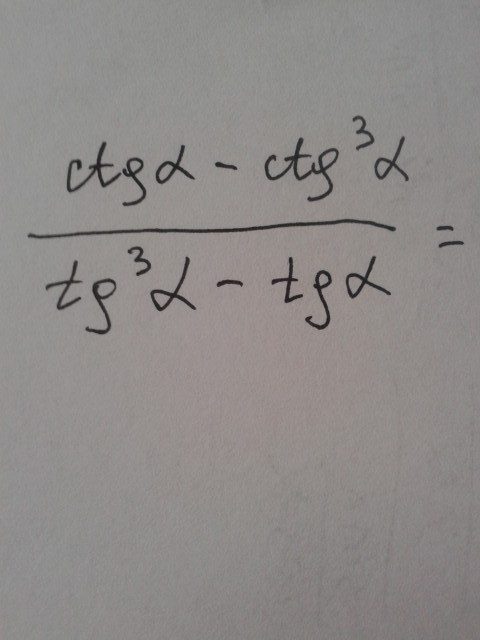 ctgα - ctg³α
tg³α - tgα
=